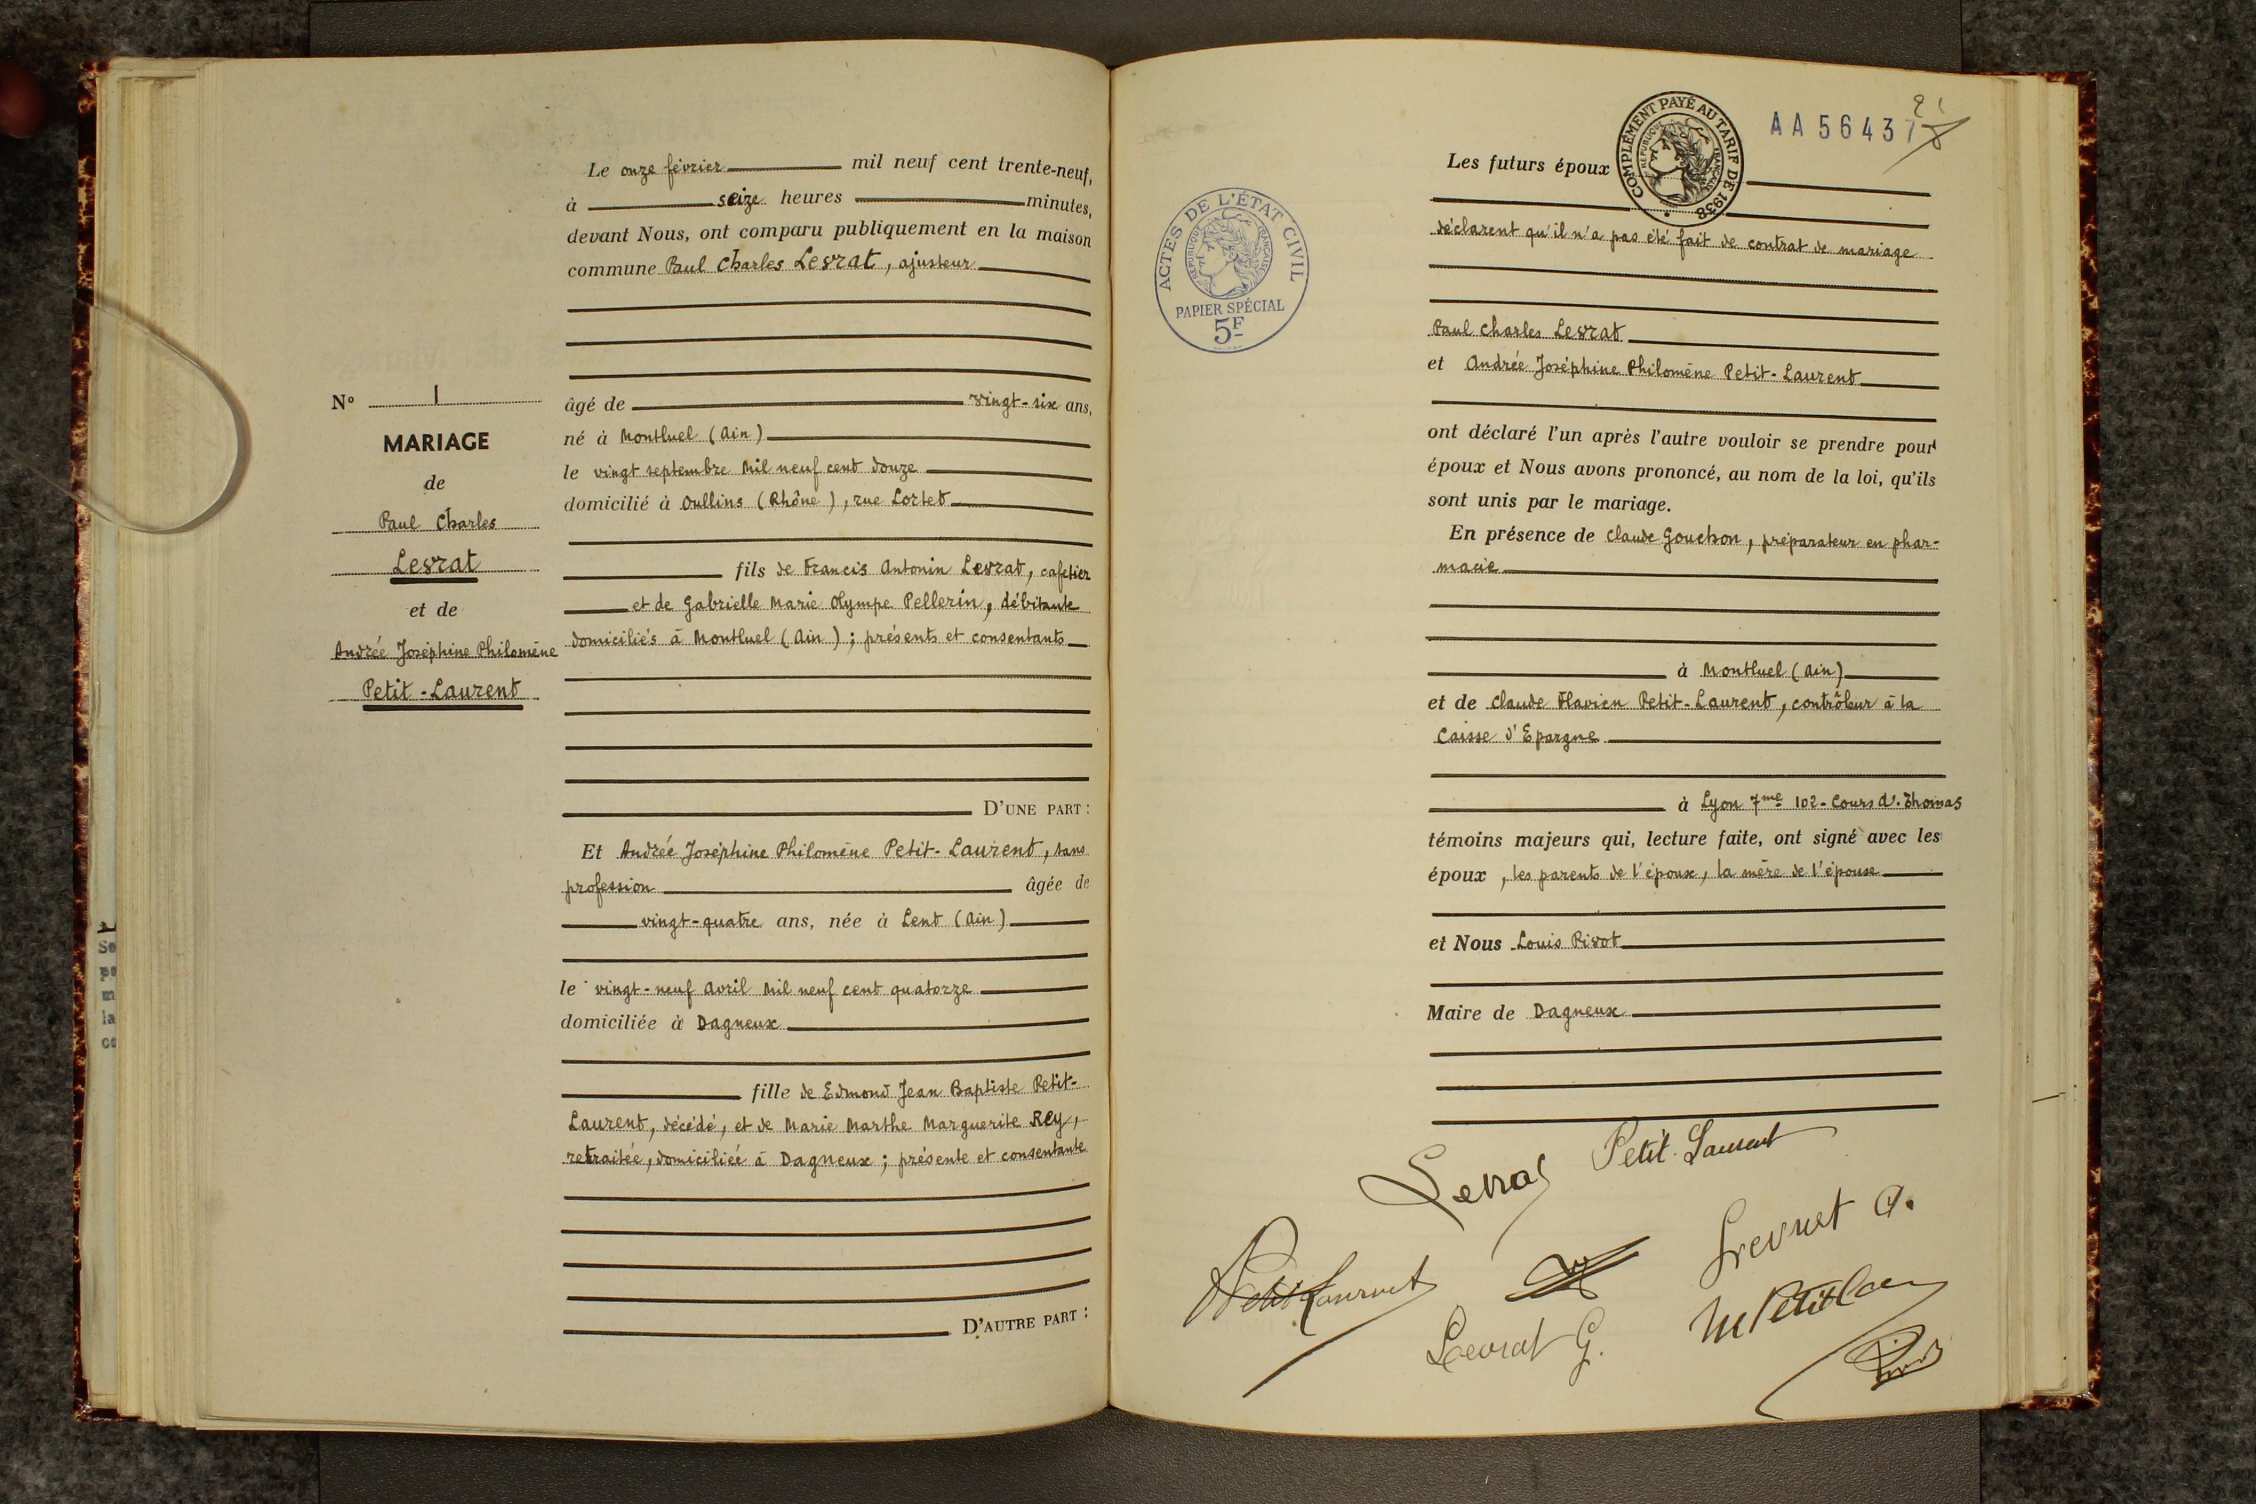 Le onze février mil neuf cent trente-neuf,
à seize heures minutes,
devant Nous, ont comparu publiquement en la maison
commune Paul Charles Levrat, ajusteur
âgé de vingt-six ans,
né à Montluel (Ain)
le vingt septembre mil neuf cent douze
domicilié à Oullins (Rhône), rue Lortet
fils de Francis Antonin Levrat, cafetier
et de Gabrielle Marie Olympe Pellerin, débitante
domiciliés à Montluel (Ain) ; présents et consentants
D'UNE PART :
Et Andrée Joséphine Philomène Petit-Laurent, sans
profession âgée de
vingt-quatre ans, née à Lent (Ain)
le vingt-neuf avril mil neuf cent quatorze
domiciliée à Dagneux
fille de Edmond Jean Baptiste Petit-
Laurent, décédé, et de Marie Marthe Marguerite Rey,
retraitée, domiciliée à Dagneux ; présente et consentante
D'AUTRE PART :
N° 1
MARIAGE
de
Paul Charles
Levrat
et de
Andrée Joséphine Philomène
Petit-Laurent
Se
po
m
la
co
ACTES DE L'ÉTAT CIVIL
RÉPUBLIQUE FRANÇAISE
PAPIER SPÉCIAL
5F
COMPLÉMENT PAYÉ AU TARIF DE 1938
RÉPUBLIQUE FRANÇAISE
AA 56437
Les futurs époux
déclarent qu'il n'a pas été fait de contrat de mariage
Paul Charles Levrat
et Andrée Joséphine Philomène Petit-Laurent
ont déclaré l'un après l'autre vouloir se prendre pour
époux et Nous avons prononcé, au nom de la loi, qu'ils
sont unis par le mariage.
En présence de Claude Gouchon, préparateur en phar-
macie
à Montluel (Ain)
et de Claude Flavien Petit-Laurent, contrôleur à la
Caisse d'Epargne
à Lyon 7me 102 - Cours A. Thomas
témoins majeurs qui, lecture faite, ont signé avec les
époux, les parents de l'époux, la mère de l'épouse
et Nous Louis Rivot
Maire de Dagneux
Levrat
Petit-Laurent
Petit Laurent
Levrat G.